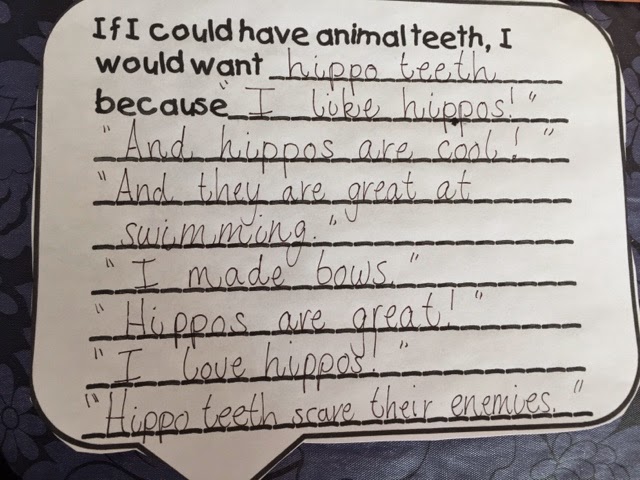 If I could have animal teeth, I
would want hippo teeth
because "I like hippos!"
"And hippos are cool!"
"And they are great at
swimming."
"I made bows."
"Hippos are great!"
"I love hippos!"
"Hippo teeth scare their enemies."